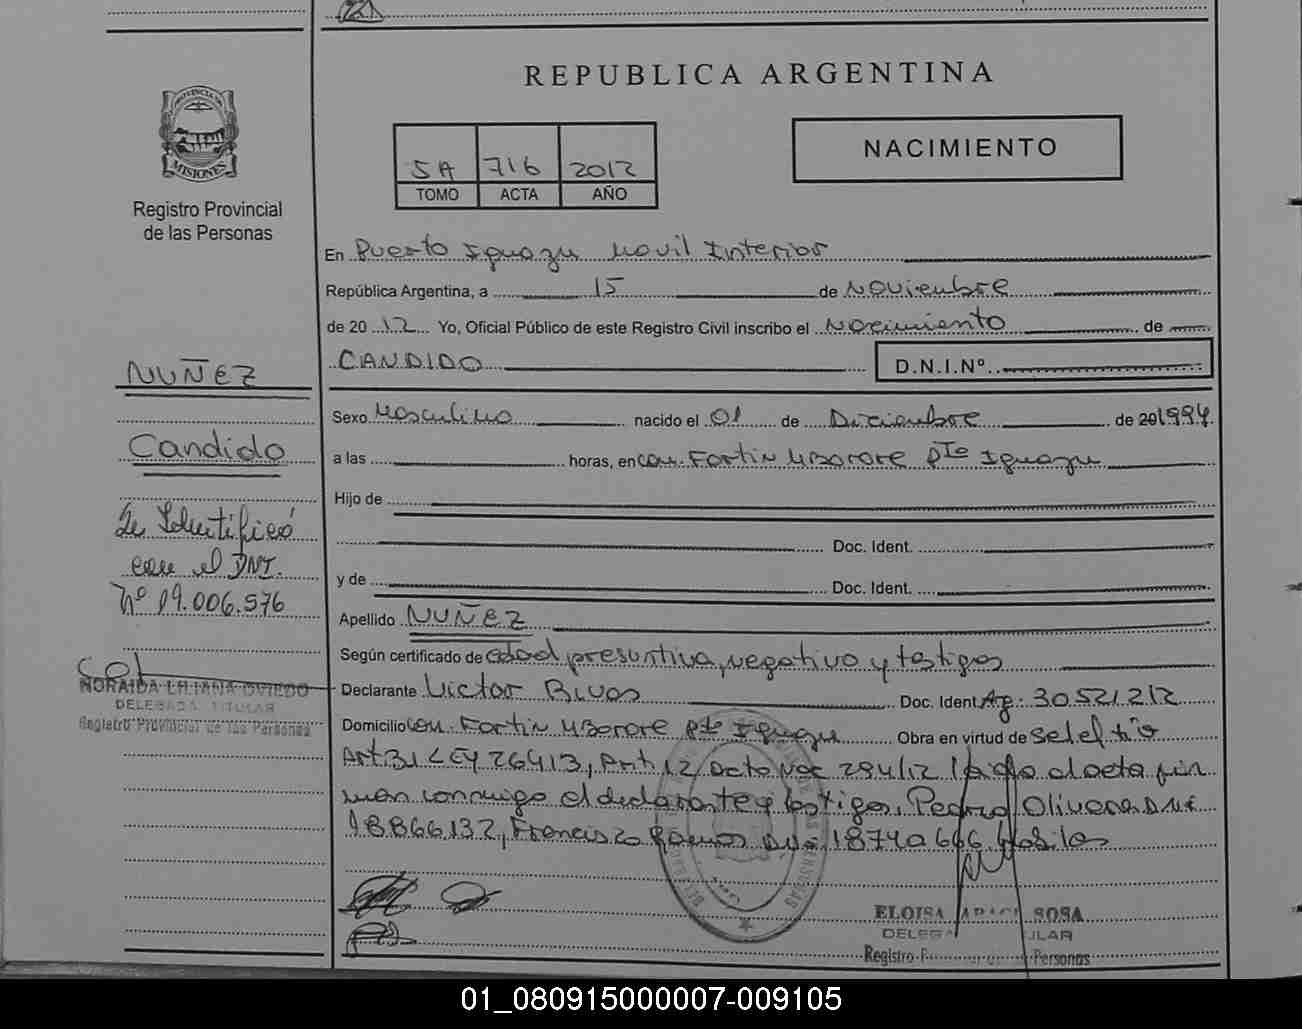 REPUBLICA ARGENTINA
PROVINCIA DE
MISIONES
Registro Provincial
de las Personas
5A 716 2012
TOMO ACTA AÑO
NACIMIENTO
En Puerto Iguazu Movil Interior
República Argentina, a 15 de Noviembre
de 2012 Yo, Oficial Público de este Registro Civil inscribo el Nacimiento de
CANDIDO D.N.I.Nº
NUÑEZ
Candido
Se Identificó
con el DNI.
Nº 19.006.576
NORAIDA LILIANA OVIEDO
DELEGADA TITULAR
Registro Provincial de las Personas
Sexo Masculino nacido el 01 de Diciembre de 201994
a las horas, en com. Fortin Mborore Pto Iguazu
Hijo de
Doc. Ident.
y de Doc. Ident.
Apellido NUÑEZ
Según certificado de edad presuntiva, negativo y testigos
Declarante Victor Doc. Ident Ag. 30521212
Domicilio com. Fortin Mborore Pto Iguazu Obra en virtud de
Art 31 LEY 26413, Art 12 Dcto Nac 294/12 el acta fir
man conmigo el declarante y testigos, Pedro Olivera DNI
18866132, Francisco Ramos DNI 18740666
ELOISA SOSA
DELEGA ULAR
Registro Personas
01_080915000007-009105